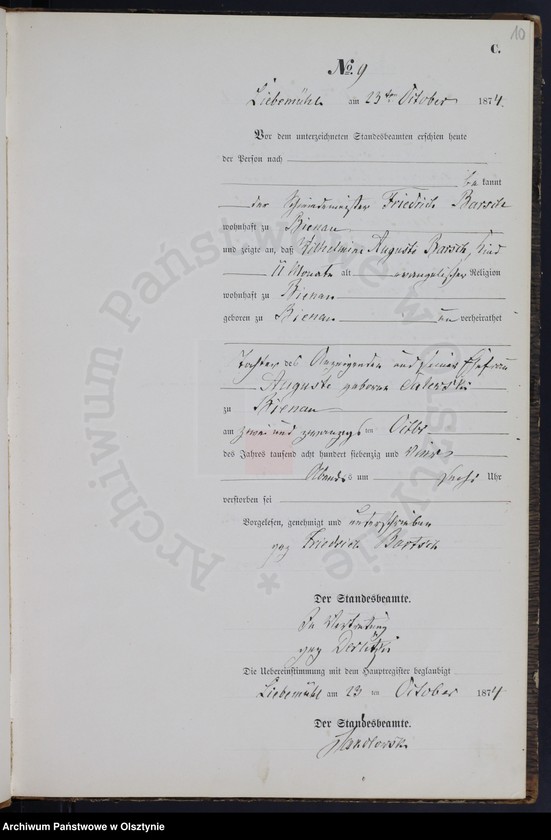 10
C.
No. 9
Liebemühl am 23ten October 1874.
Vor dem unterzeichneten Standesbeamten erschien heute
der Person nach
be kannt
der Friedrich Barsch
wohnhaft zu Bienau
und zeigte an, daß Wilhelmine Auguste Barsch, Kind
11 Monate alt evangelischer Religion
wohnhaft zu Bienau
geboren zu Bienau un verheirathet
Tochter des Anzeigenden und seiner Ehefrau
Auguste geborne
zu Bienau
am zwei und zwanzigsten Octbr
des Jahres tausend acht hundert siebenzig und vier
Abends um sechs Uhr
verstorben sei
Vorgelesen, genehmigt und unterschrieben
gez Friedrich Bartsch
Der Standesbeamte.
In Vertretung
gez
Die Uebereinstimmung mit dem Hauptregister beglaubigt
Liebemühl am 23 ten October 1874.
Der Standesbeamte.
Archiwum Państwowe w Olsztynie *
Archiwum Państwowe w Olsztynie